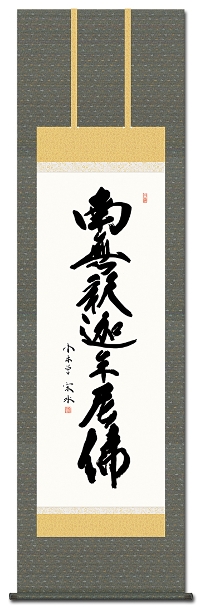 南無釈迦牟尼佛